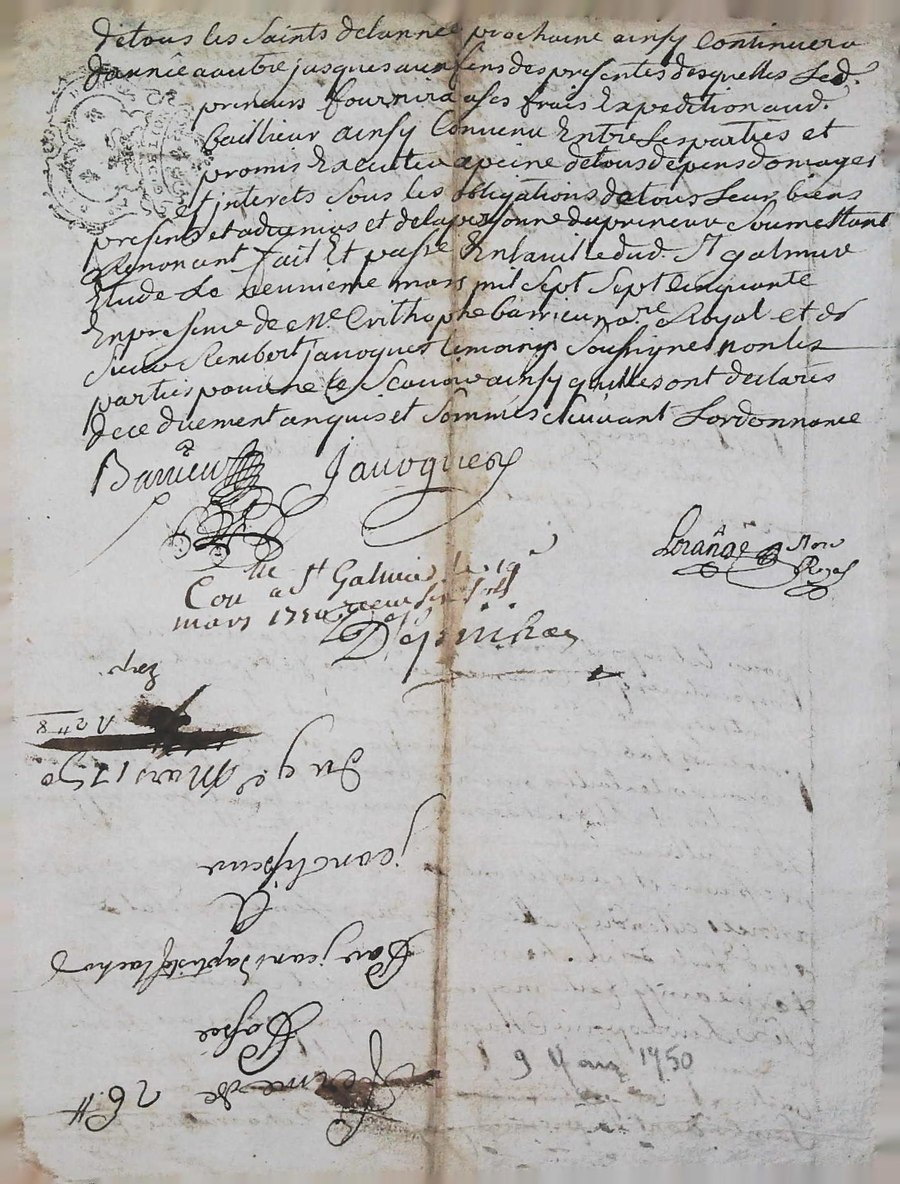 detous les saints delannee prochaine ainsy Continuera
dannée aautre jusques aux fins des presentes desquelles Led.
preneur fournira ases frais Expedition aud.
bailleur ainsy Convenu Entre Lesparties et
promis Executter apeine detous depens domages
et interets Sous les obligations detous Leur biens
presents et advenirs et delapersonne dupreneur Soumettant
Renonant fait Et passé Enlaville dud. St galmier
Etude Le neufvieme mars mil Sept Sept Cinquante
Enpresence de Me. Cristhophe barrieu nore. Royal et de
Sieur Rembert Javogues temoins Soussignes non les
parties pour ne le Scavoir ainsy quilles ont declarés
dece duement anquis et Sommés Suivant Lordonnance
Barrieu Javogues
Lorange Nore
Royal
Conlle a St Galmier le 19
mars 1750
pez
R 2# 8
Du 9e Mars 1750
A
Par jean Baptiste
26# ferme de
9 Mars 1750